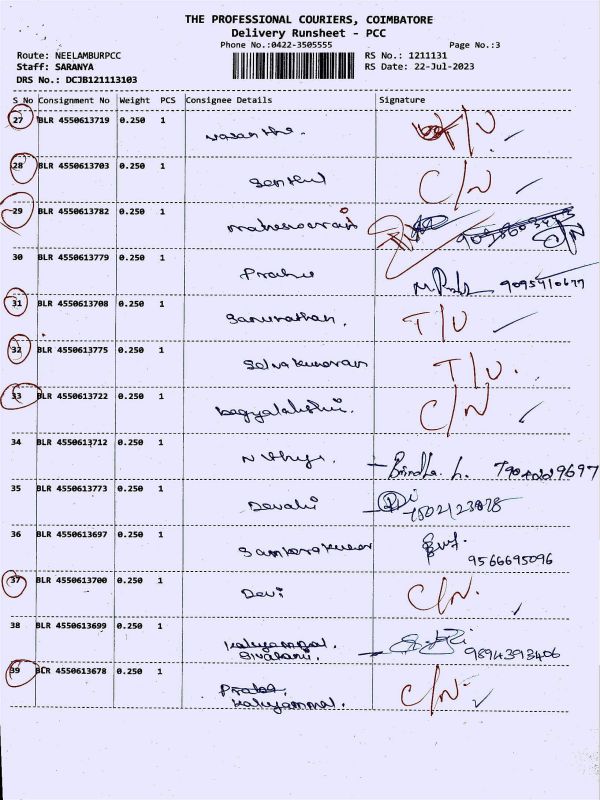 THE PROFESSIONAL COURIERS, COIMBATORE
Delivery Runsheet - PCC
Phone No.:0422-3505555 Page No.:3
Route: NEELAMBURPCC RS No.: 1211131
Staff: SARANYA RS Date: 22-Jul-2023
DRS No.: DCJB121113103
S No Consignment No Weight PCS Consignee Details Signature
27 BLR 4550613719 0.250 1 T/U.
28 BLR 4550613703 0.250 1 Senthil C/N
29 BLR 4550613782 0.250 1 C/N
30 BLR 4550613779 0.250 1 Prabu
31 BLR 4550613708 0.250 1 T/U
32 BLR 4550613775 0.250 1 Selvakumaran T/U.
33 BLR 4550613722 0.250 1 C/N
34 BLR 4550613712 0.250 1 Brindha. L.
35 BLR 4550613773 0.250 1 Devaki
36 BLR 4550613697 0.250 1 9566695096
37 BLR 4550613700 0.250 1 Devi C/N.
38 BLR 4550613699 0.250 1 9894393406
Sivakami.
39 BLR 4550613678 0.250 1 C/N.